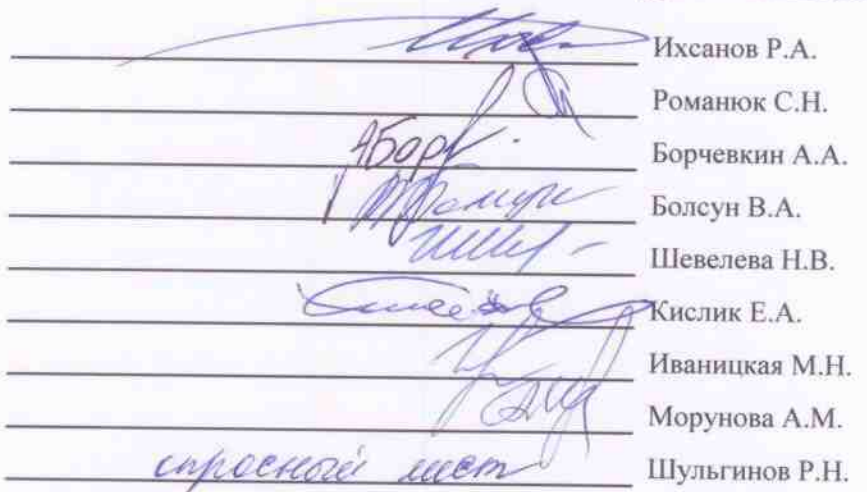 Ихсанов Р.А.
Романюк С.Н.
Борчевкин А.А.
Болсун В.А.
Шевелева Н.В.
Кислик Е.А.
Иваницкая М.Н.
Морунова А.М.
опросный лист Шульгинов Р.Н.